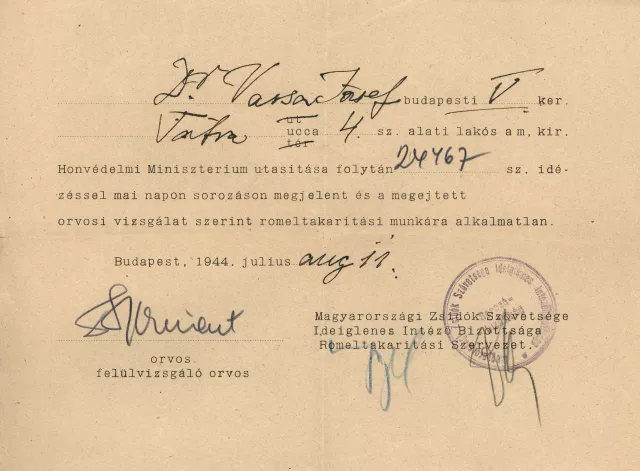 Dr Vassa József budapesti V ker.
ut
Tátra ucca 4. sz. alatti lakós a m, kir.
tér
Honvédelmi Miniszterium utasitása folytán 24467 sz. idé-
zéssel mai napon sorozáson megjelent és a megejtett
orvosi vizsgálat szerint romeltakaritási munkára alkalmatlan.
Budapest, 1944. julius aug 11.
Magyarországi Zsidók Szövetsége
Ideiglenes Intéző Bizottsága
Romeltakaritási Szervezet.
orvos
felülvizsgáló orvos